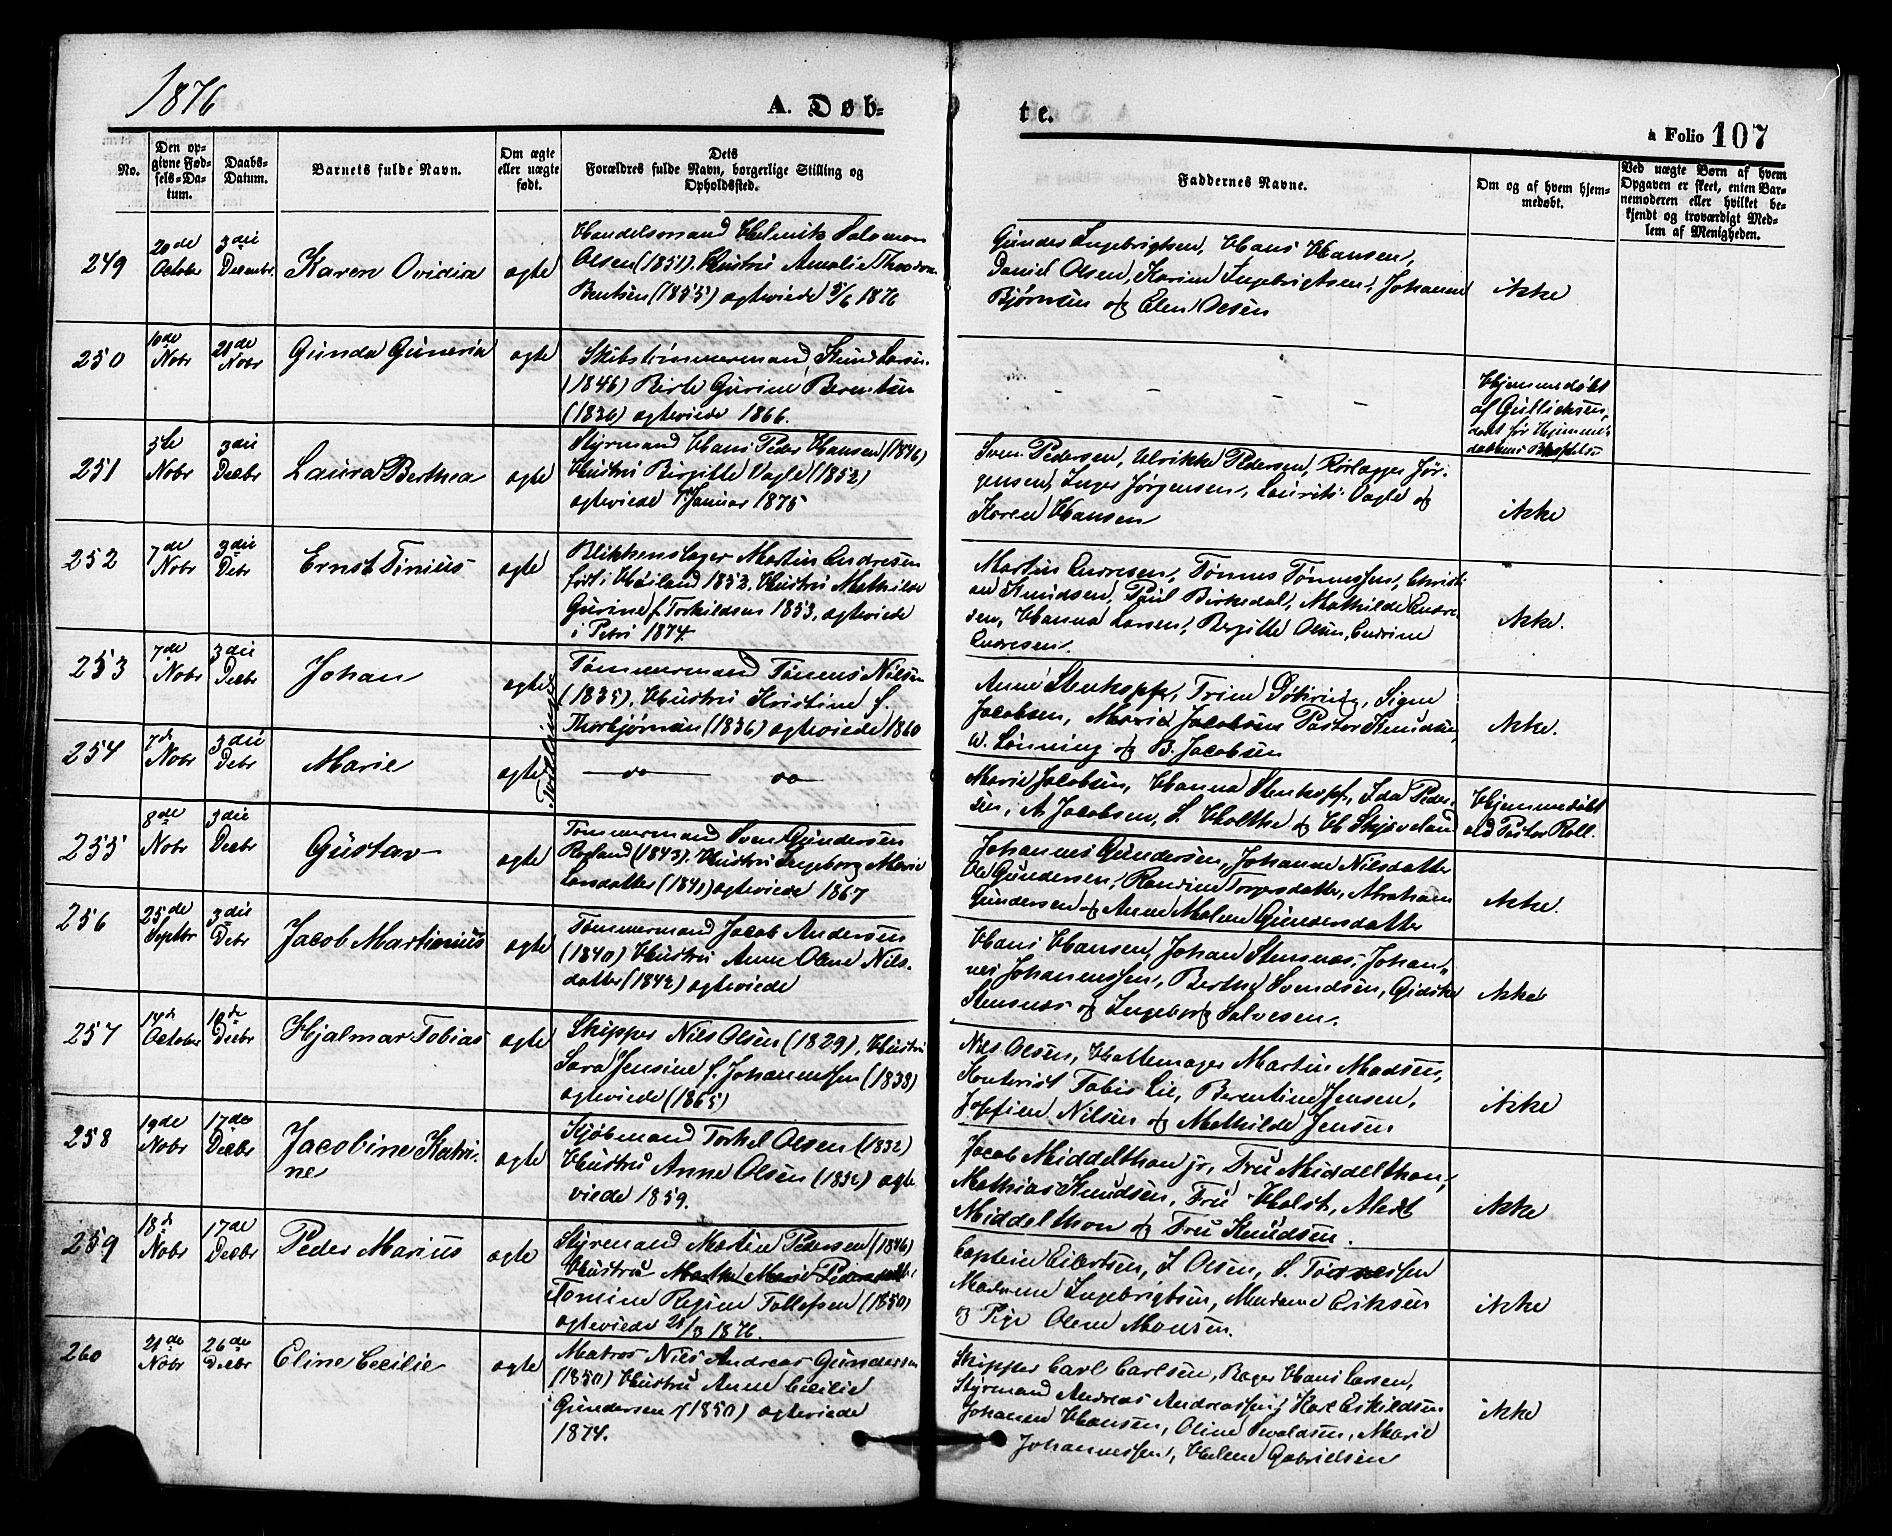 1876
A. Døb-
te.
a Folio 107
No.
Den op-
givne Fød-
sels-Da-
tum.
Daabs-
Datum.
Barnets fulde Navn.
Om ægte
eller uægte
født.
Dets
Forældres fulde Navn, borgerlige Stilling og
Opholdssted.
Faddernes Navne.
Om og af hvem hjem-
medøbt.
Ved uægte Børn af hvem
Opgaven er skeet, enten Bar-
nemoderen eller hvilket be-
kjendt og troværdigt Med-
lem af Menigheden.
249
20de
October
3die
Decembr
Karen Ovidia
ægte
Handelsmand Helmik Salomon
Olsen (1851). Hustru Amalie Theodora
Bentsen (1855) ægteviede 5/6 1876
Gunder Ingebrigtsen, Hans Hansen,
Daniel Olsen, Karine Ingebrigtsen, Johanne
Bjørnsen og Elen Olsen
ikke
250
10de
Nobr
28de
Nobr
Gunda Guneria
ægte
Skibstømmermand Knud Larsen
(1846) Birte Gurine Berentsen
(1836) ægteviede 1866.
- - - -
Hjemmedøbt
af Gullichsen,
død før Hjemme-
daabens
251
5te
Nobr
3die
Decbr
Laura Berthea
ægte
Styrmand Hans Peder Hansen (1846)
Hustru Birgitte Vagle (1852)
ægteviede Januar 1875
Sven Pedersen, Ulrikke Pedersen, Rørlægger Jør-
gensen, Inger Jørgensen, Laurits Vagle og
Karen Hansen
ikke
252
7de
Nobr
3die
Debr
Ernst Tinius
ægte
Blikkenslager Martin Endresen
født i Høiland 1852, Hustru Mathilde
Gurine f. Torkildsen 1853, ægteviede
i Petri 1874
Martin Endresen, Tønnes Tønnessen, Christi-
an Knudsen, Paul Birkedal, Mathilde Endre-
sen, Hanna Larsen, Birgitte Olsen, Endrine
Endresen.
Ikke.
253
7de
Nobr
3die
Decbr
Johan
ægte
Tvillinge
Tømmermand Tønnes Nilsen
(1835), Hustru Kristine f.
Thorbjørnsen (1836) ægteviede 1860
Anne Stenkopf, Trine Signe
Jacobsen, Marie Jacobsen Pastor Knudsen,
W. Lønning og B. Jacobsen
Ikke.
254
7de
Nobr
3die
Debr
Marie
ægte
do do
Marie Jacobsen, Hanna Stenkopf, Ida Peder-
sen, A. Jacobsen, L. Holthe og H. Skjæveland
Hjemmedøbt
ved Pastor Roll.
255
8de
Nobr
3die
Decbr
Gustav
ægte
Tømmermand Sven Gundersen
Røgland (1843), Hustru Ingeborg Marie
Larsdatter (1841) ægteviede 1867
Johannes Gundersen, Johanne Nilsdatter
Ole Gundersen, Randine Torgersdatter, Abraham
Gundersen og Anne Malene Gundersdatter
Ikke.
256
25de
Septbr
3die
Debr
Jacob Martinius
ægte
Tømmermand Jacob Andersen
(1840) Hustru Anne Olene Nils-
datter (1842) ægteviede
Hans Hansen, Johan Stensnæs, Johan-
nes Johannessen, Berthe Svendsen, Gidske
Stensnæs og Ingeborg Salvesen.
Ikke
257
14de
October
10de
Decbr
Hjalmar Tobias
ægte
Skipper Nils Olsen (1829), Hustru
Sara Jensine f. Johannessen (1838)
ægteviede (1865)
Nils Olsen, Hattemager Martin Madsen,
Konterist Tobis Lie, Berentine Jensen,
Josefine Nilsen og Mathilde Jensen
ikke
258
19de
Nobr
17de
Decbr
Jacobine Katri-
ne
ægte
Kjøbmand Torkel Olsen (1832)
Hustru Anne Olsen (1832) ægte
viede 1859.
Jacob Middelthon jr, Fru Middelthon,
Mathias Knudsen, Fru Holst, Alex
Middelthon og Fru Knudsen.
ikke
259
18de
Nobr
17de
Decbr
Peder Marius
ægte
Styrmand Martin Pedersen (1846)
Hustru Marthe Marie Pedersdatter
Tomine Regine Tollefsen (1850)
ægteviede 21/3 1876.
Captein Eilertsen, J. Olsen, S. Tønnessen
Madame Ingebrigtsen, Madame Eriksen
og Pige Olene Monsen.
ikke
260
21de
Nobr
26de
Decbr
Eline Cecilie
ægte
Matros Nils Andreas Gundersen
(1850) Hustru Anne Cecilie
Gundersen (1850) ægteviede
1874.
Skipper Carl Carlsen, Bager Hans Larsen,
Styrmand Andreas Andreassen, Karl Eskildsen
Johanne Hansen, Oline Sevaldsen, Marie
Johannessen, Helene Gabrielsen
ikke